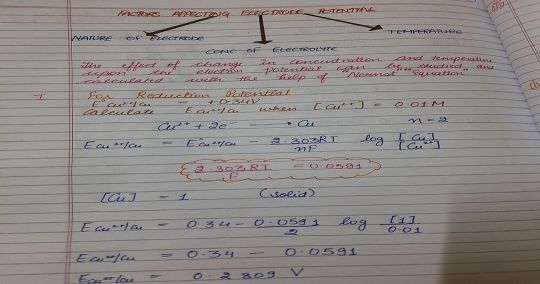 FACTORS AFFECTING ELECTRODE POTENTIAL
NATURE OF ELECTRODE
TEMPERATURE
CONC OF ELECTROLYTE
The effect of change in concentration and temperature
upon the electron potential can be studied and
calculated with the help of "Nernst Equation"
I For Reduction Potential
E°Cu²⁺/Cu = +0.34V
Calculate ECu²⁺/Cu when [Cu²⁺] = 0.01M
Cu²⁺ + 2e⁻ → Cu n=2
ECu²⁺/Cu = E°Cu²⁺/Cu - 2.303RT/nF log [Cu]/[Cu²⁺]
2.303RT/F = 0.0591
[Cu] = 1 (solid)
ECu²⁺/Cu = 0.34 - 0.0591/2 log [1]/0.01
ECu²⁺/Cu = 0.34 - 0.0591
ECu²⁺/Cu = 0.2809 V